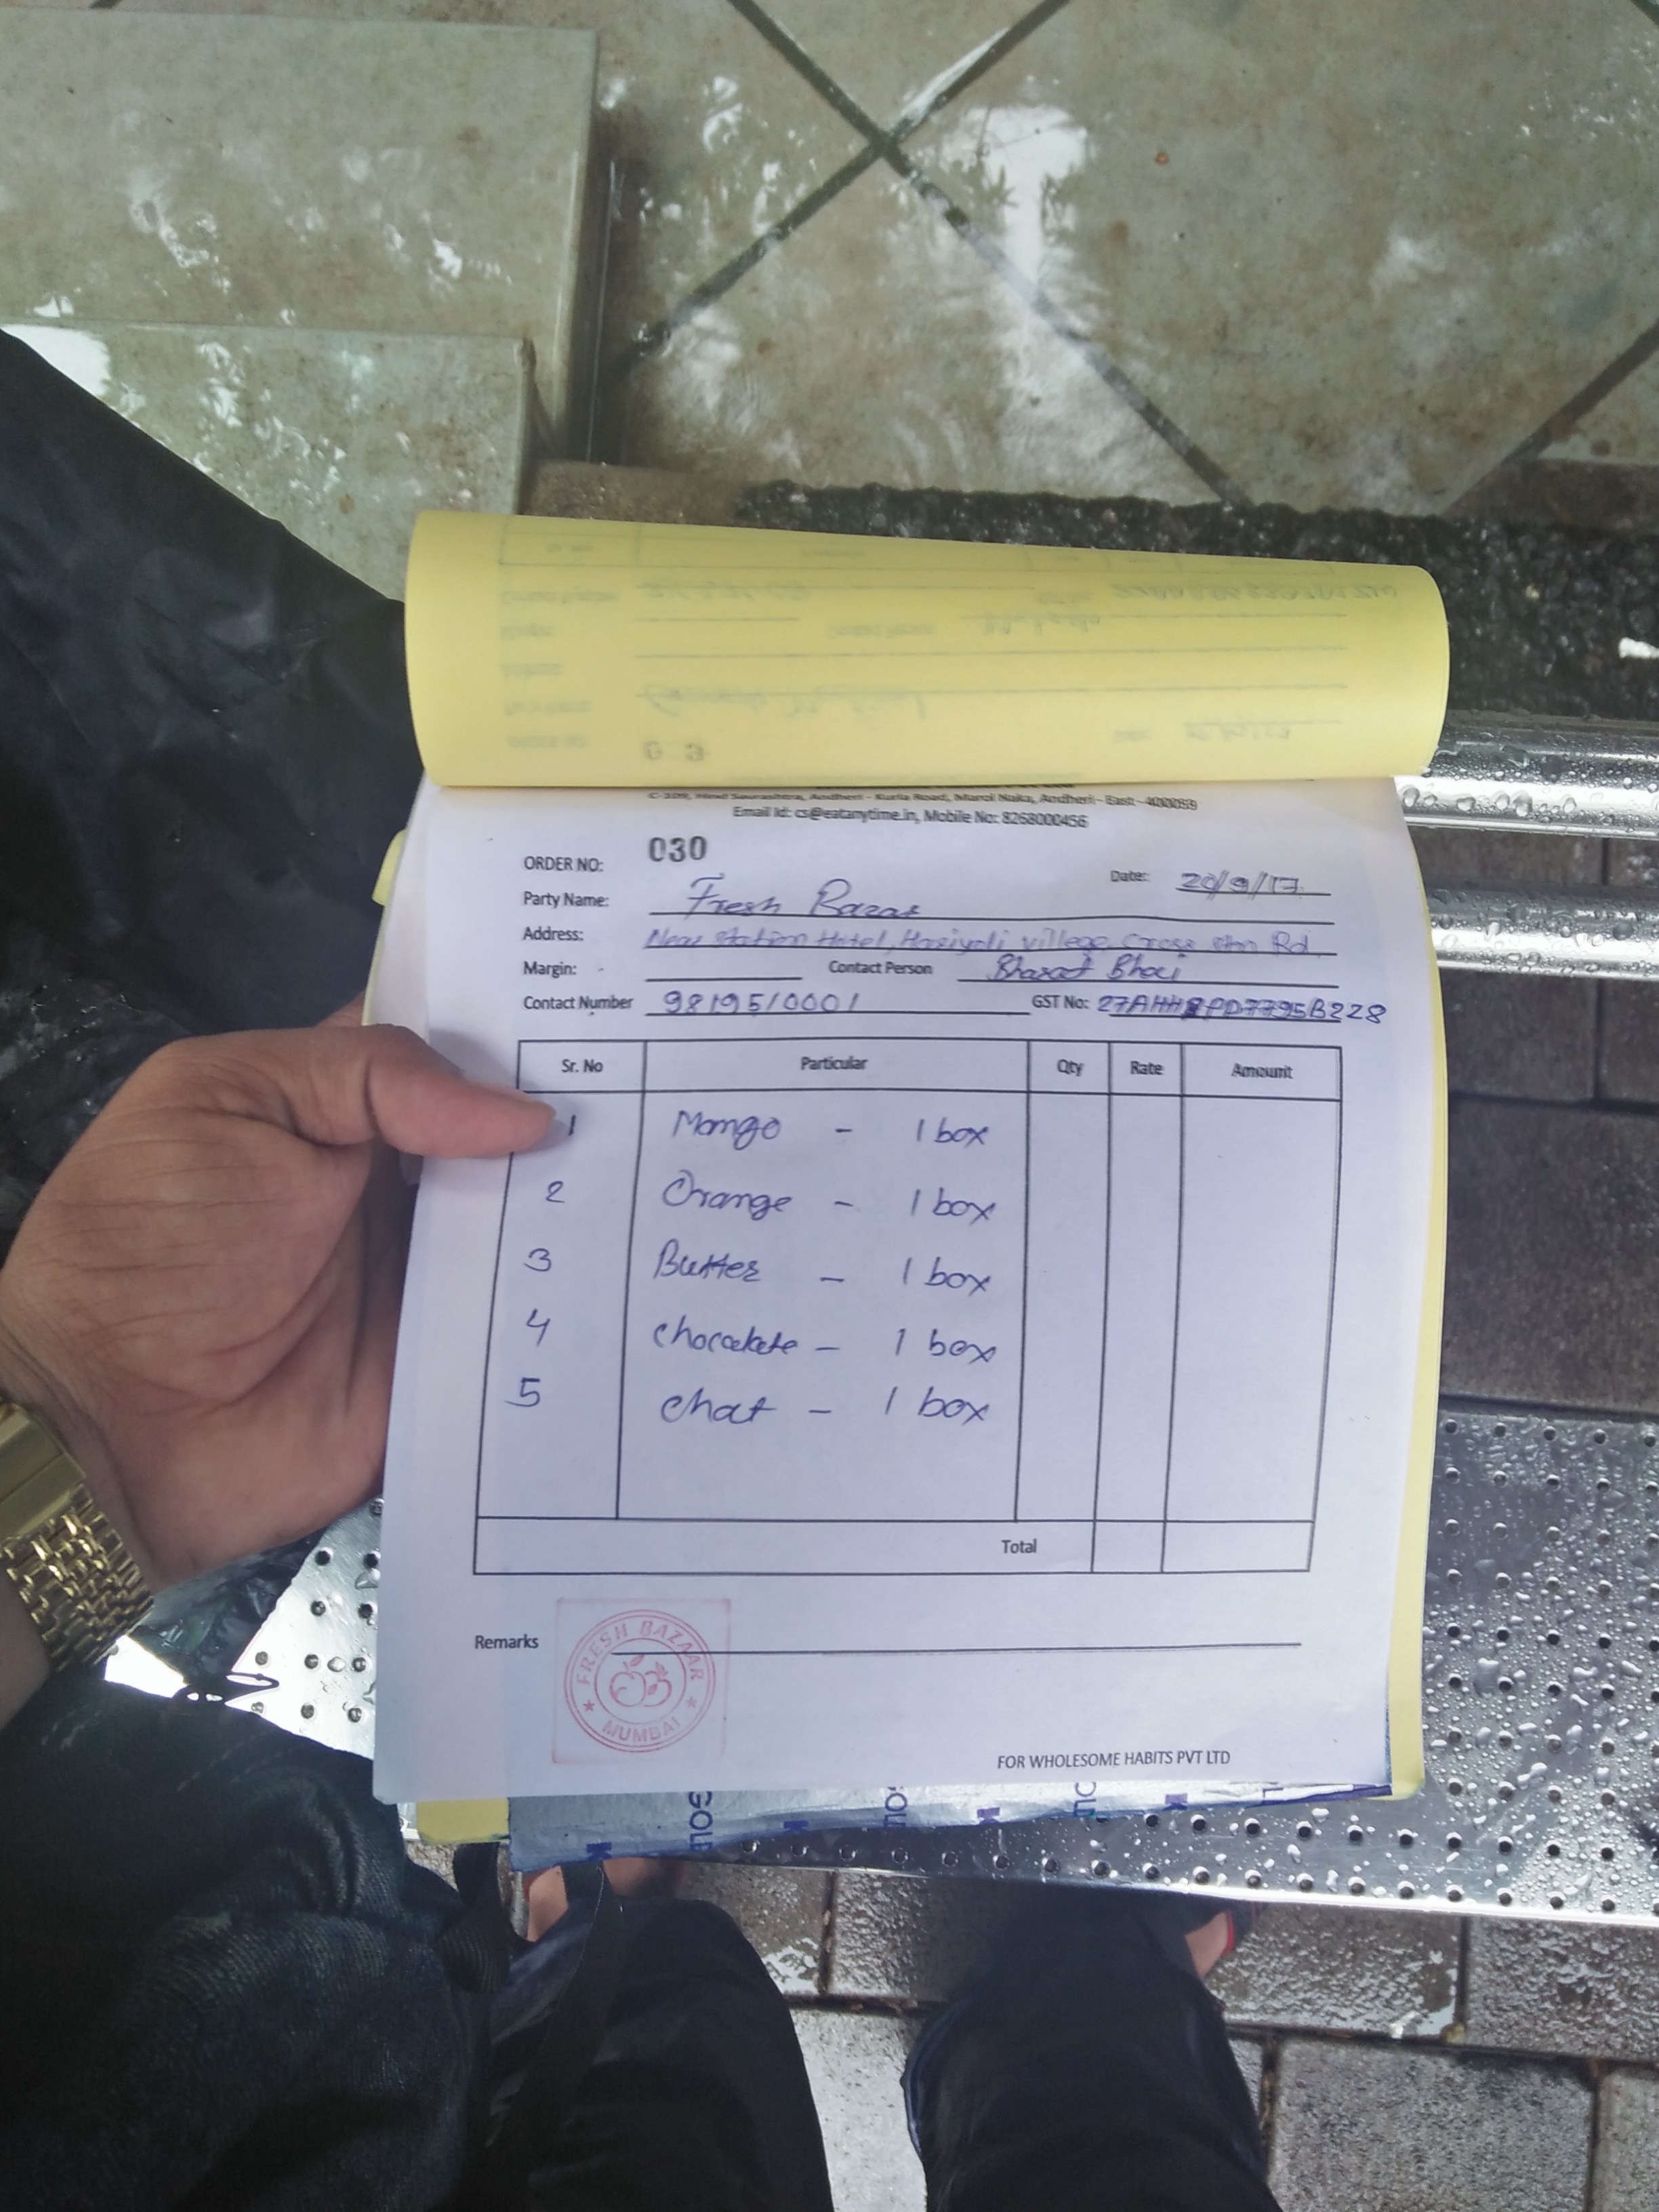 C-109, Hind Saurashtra, Andheri - Kurla Road, Marol Naka, Andheri - East - 400059
Email Id: cs@eatanytime.in, Mobile No: 8268000456
ORDER NO: 030
Date: 20/9/17
Party Name: Fresh Bazar
Address: Near Station Hotel, village, Cross Rd.
Margin: Contact Person Bharat Bhai
Contact Number 9819510001 GST No:
Sr. No Particular Qty Rate Amount
1 Mango - 1 box
2 Orange - 1 box
3 Butter - 1 box
4 chocolate - 1 box
5 chat - 1 box
Total
Remarks
FRESH BAZAAR
MUMBAI
FOR WHOLESOME HABITS PVT LTD
GOLD